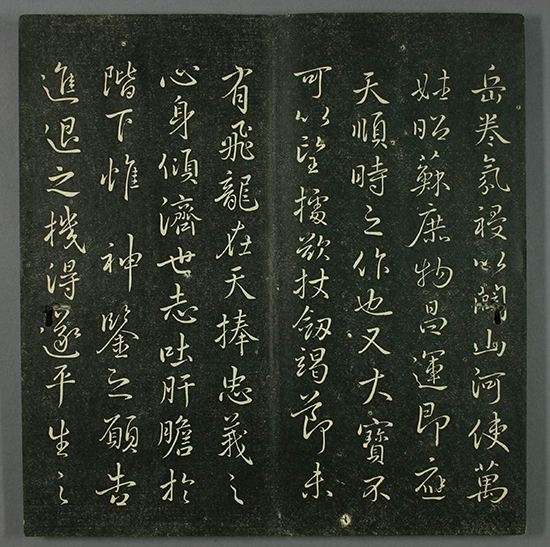 岳卷氛祲以闢山河使萬
姓昭蘇庶物昌運即應
天順時之作也又大寶不
可以望據欲杖劒竭節未
有飛龍在天捧忠義之
心身傾濟世志吐肝膽於
階下惟 神鑒之願告
進退之機得遂平生之